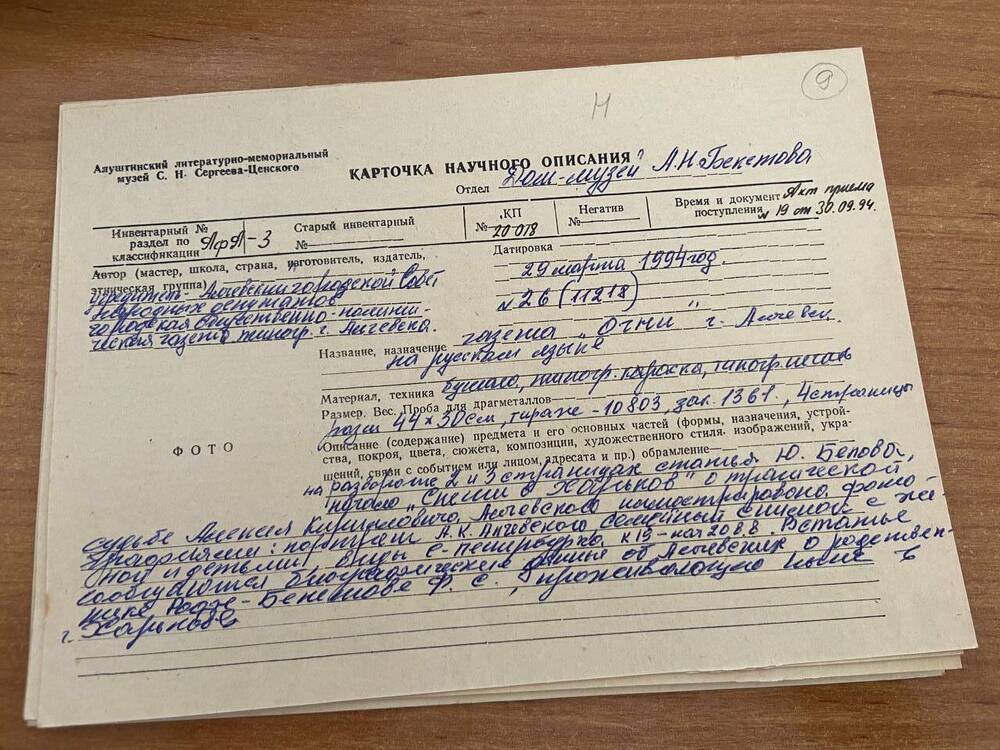 9
Н
Алуштинский литературно-мемориальный
музей С. Н. Сергеева-Ценского
КАРТОЧКА НАУЧНОГО ОПИСАНИЯ
Отдел Дом-музей А.Н.Бекетова
Инвентарный №
раздел по
классификации АфА-3
Старый инвентарный
№
КП
№ 20 018
Негатив
№
Время и документ Акт приема
поступления №19 от 30.09.94.
Автор (мастер, школа, страна, изготовитель, издатель,
этническая группа)
Учредитель - Алчевский городской Совет
народных депутатов
городская общественно-полити-
ческая газета типогр. г. Алчевска.
Датировка
29 марта 1994 год.
№ 26 (11218)
Название, назначение газета „Огни" г. Алчевск.
на русском языке
Материал, техника бумага, типогр. краска, типогр. печать
Размер. Вес. Проба для драгметаллов
разм 44 х 30 см, тираж - 10803, зак. 1361, 4 страницы
Описание (содержание) предмета и его основных частей (формы, назначения, устрой-
ства, покроя, цвета, сюжета, композиции, художественного стиля изображений, укра-
шений, связи с событием или лицом, адресата и пр.) обрамление
ФОТО
на развороте 2 и 3 страницах статья Ю. Белова,
начало „ в Харьков" о трагической
судьбе Алексея Кирилловича Алчевского иллюстрирована фото-
графиями: портрет А.К. Алчевского семейный снимок с же-
ной и детьми, виды С-Петербурга к 19 - нач 20 в.в. В статье
сообщаются биографические данные об Алчевских о родствен-
нике Рофе-Бекетове Ф. С., проживающего ныне в
г. Харькове